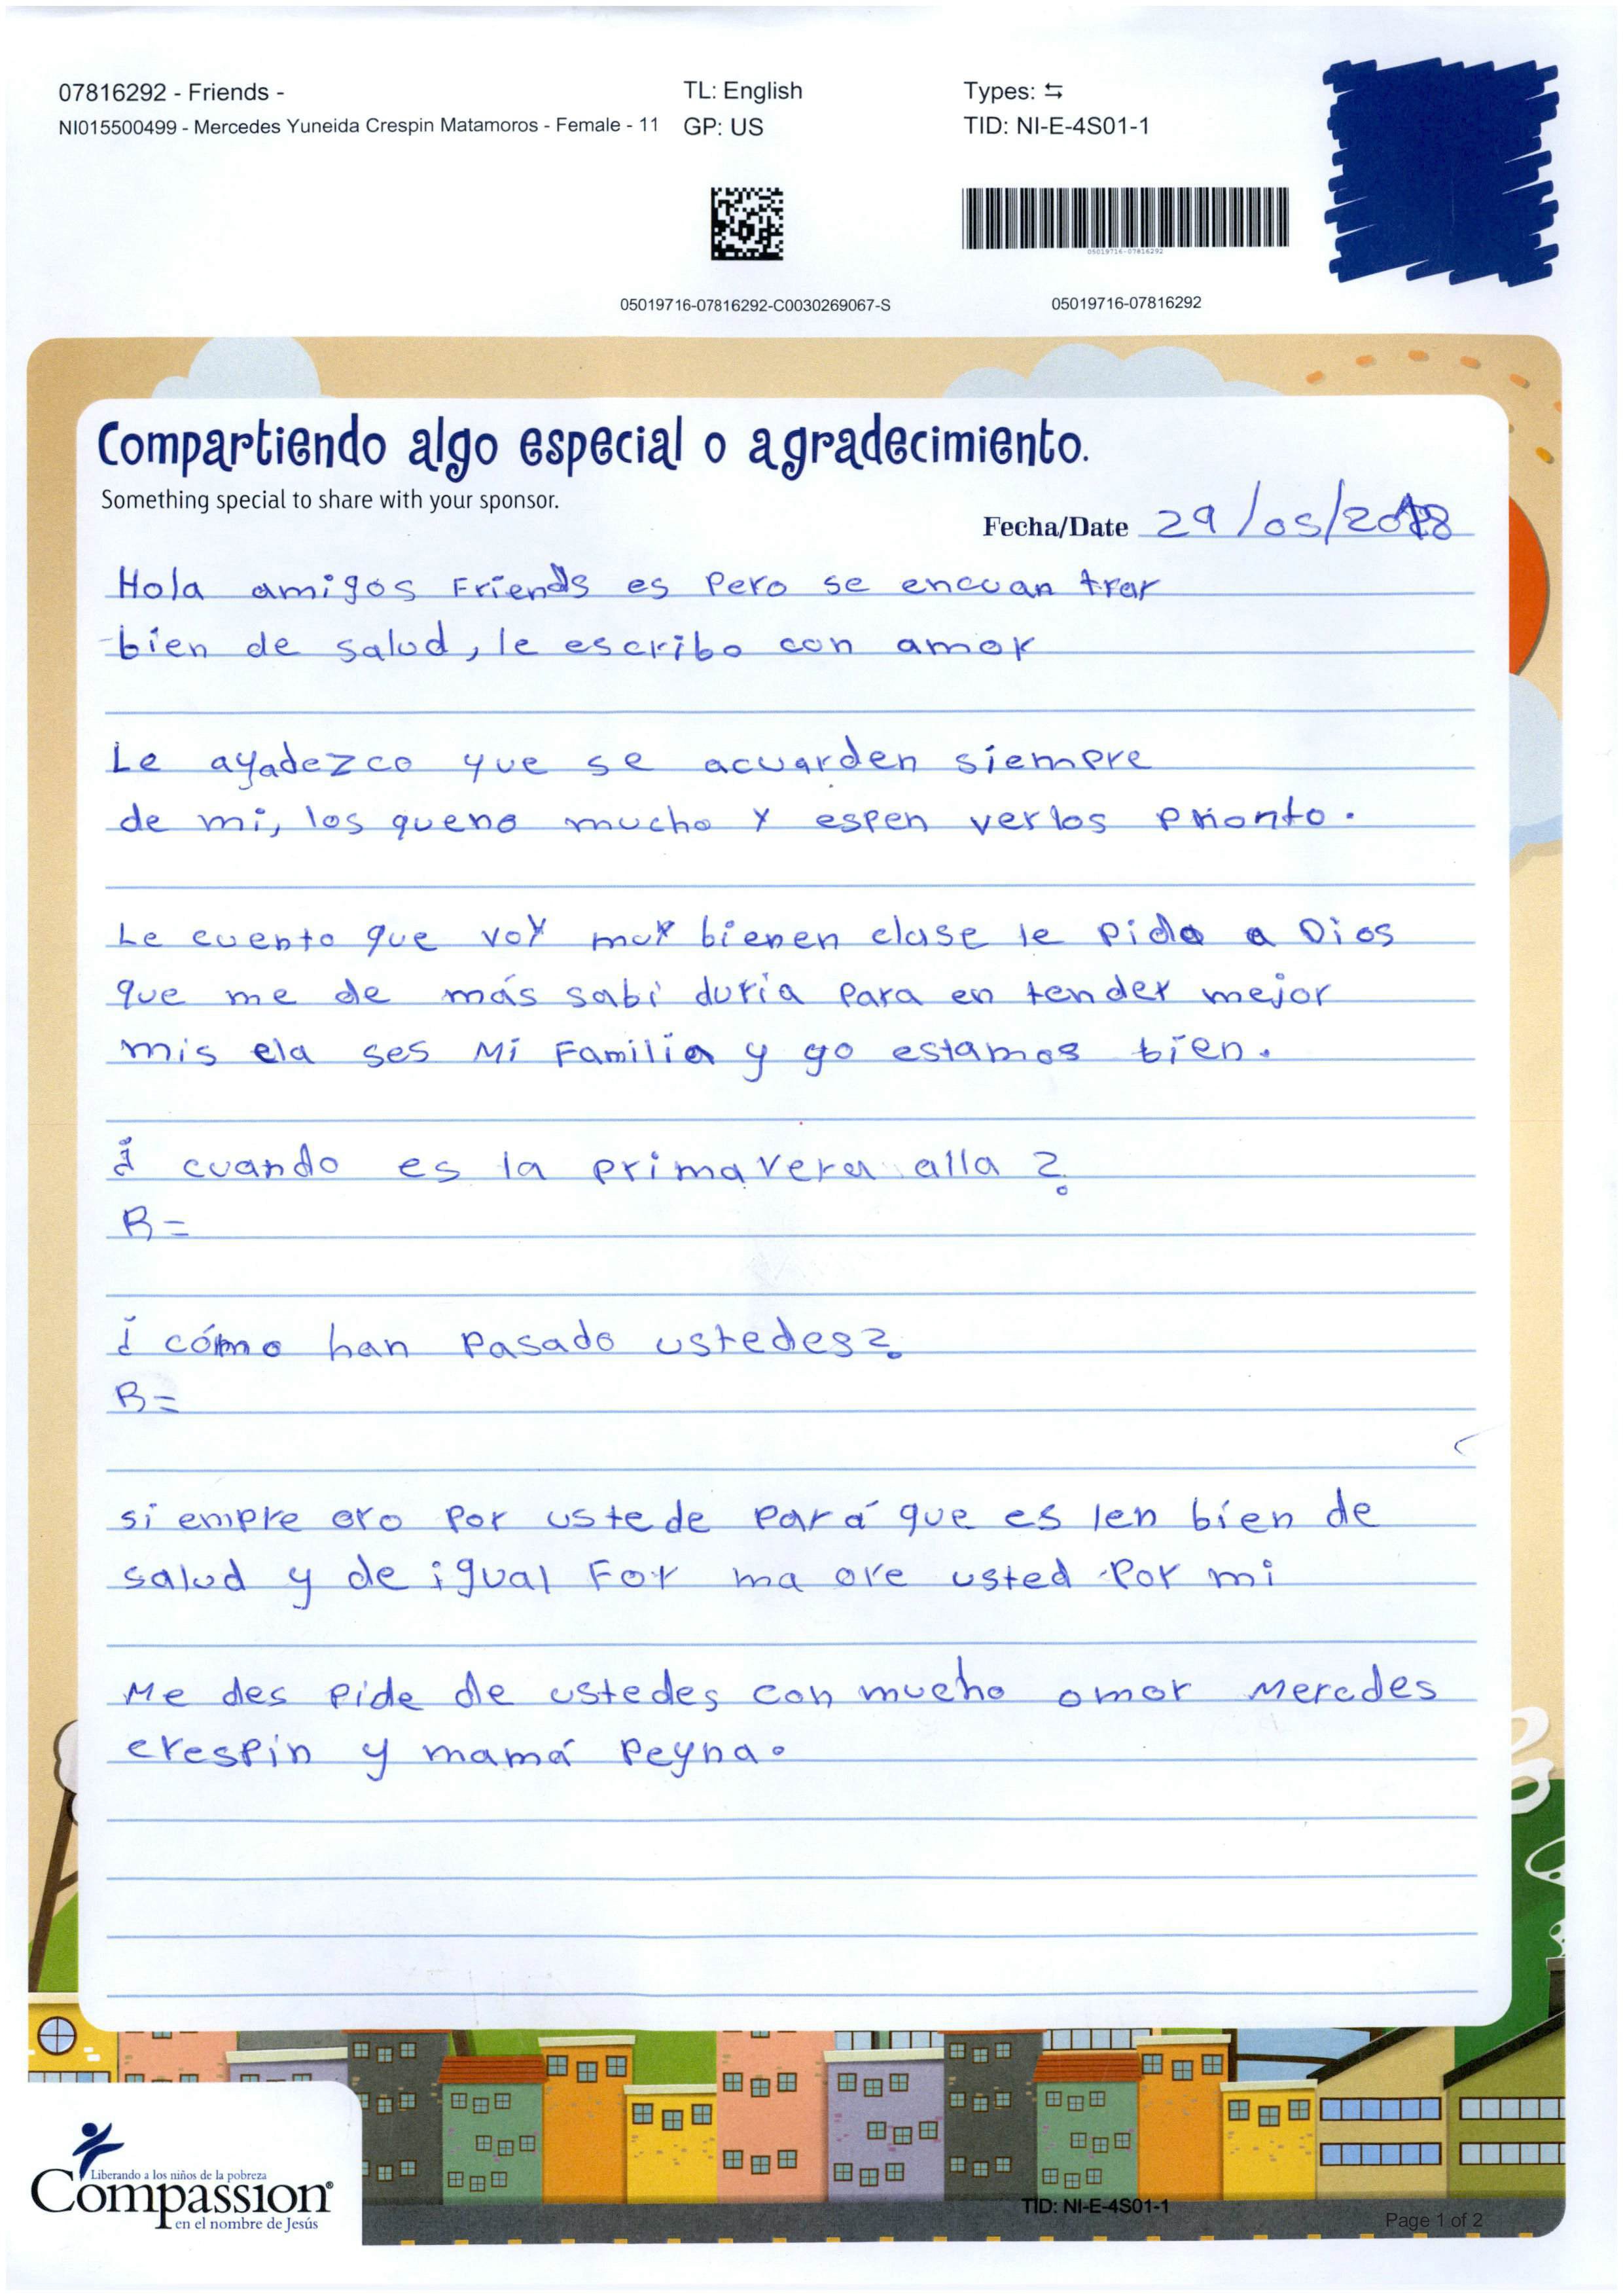 07816292 - Friends -
NI015500499 - Mercedes Yuneida Crespin Matamoros - Female - 11
TL: English
GP: US
Types: ⇆
TID: NI-E-4S01-1
05019716-07816292
05019716-07816292-C0030269067-S
05019716-07816292
Compartiendo algo especial o agradecimiento.
Something special to share with your sponsor.
Fecha/Date 29/05/2018
Hola amigos Friends es Pero se encuan trar
bien de salud, le escribo con amor
Le ayadezco que se acuarden siempre
de mi, los queno mucho y espen verlos pronto.
Le cuento que voy muy bienen clase le pido a Dios
que me de más sabi duria Para en tender mejor
mis cla ses Mi Familia y yo estamos bien.
¿ cuando es la primavera alla ?
R=
¿ cómo han pasado ustedes?
R=
si empre oro por ustede para que es ten bien de
salud y de igual For ma ore usted Por mi
Me des pide de ustedes con mucho amor Meredes
crespin y mamá Peyna.
Liberando a los niños de la pobreza
Compassion®
en el nombre de Jesús
TID: NI-E-4S01-1
Page 1 of 2